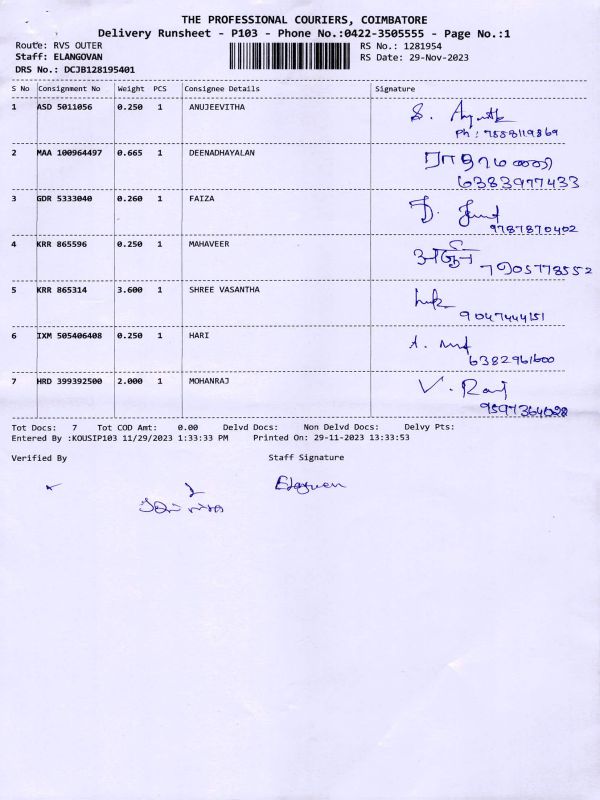 THE PROFESSIONAL COURIERS, COIMBATORE
Delivery Runsheet - P103 - Phone No.:0422-3505555 - Page No.:1
Route: RVS OUTER RS No.: 1281954
Staff: ELANGOVAN RS Date: 29-Nov-2023
DRS No.: DCJB128195401
S No Consignment No Weight PCS Consignee Details Signature
1 ASD 5011056 0.250 1 ANUJEEVITHA
Ph: 7558119369
2 MAA 100964497 0.665 1 DEENADHAYALAN
6383977433
3 GDR 5333040 0.260 1 FAIZA
9787870402
4 KRR 865596 0.250 1 MAHAVEER
7905778552
5 KRR 865314 3.600 1 SHREE VASANTHA
9047444151
6 IXM 505406408 0.250 1 HARI
6382961600
7 HRD 399392500 2.000 1 MOHANRAJ V. Raj
Tot Docs: 7 Tot COD Amt: 0.00 Delvd Docs: Non Delvd Docs: Delvy Pts:
Entered By :KOUSIP103 11/29/2023 1:33:33 PM Printed On: 29-11-2023 13:33:53
Verified By Staff Signature